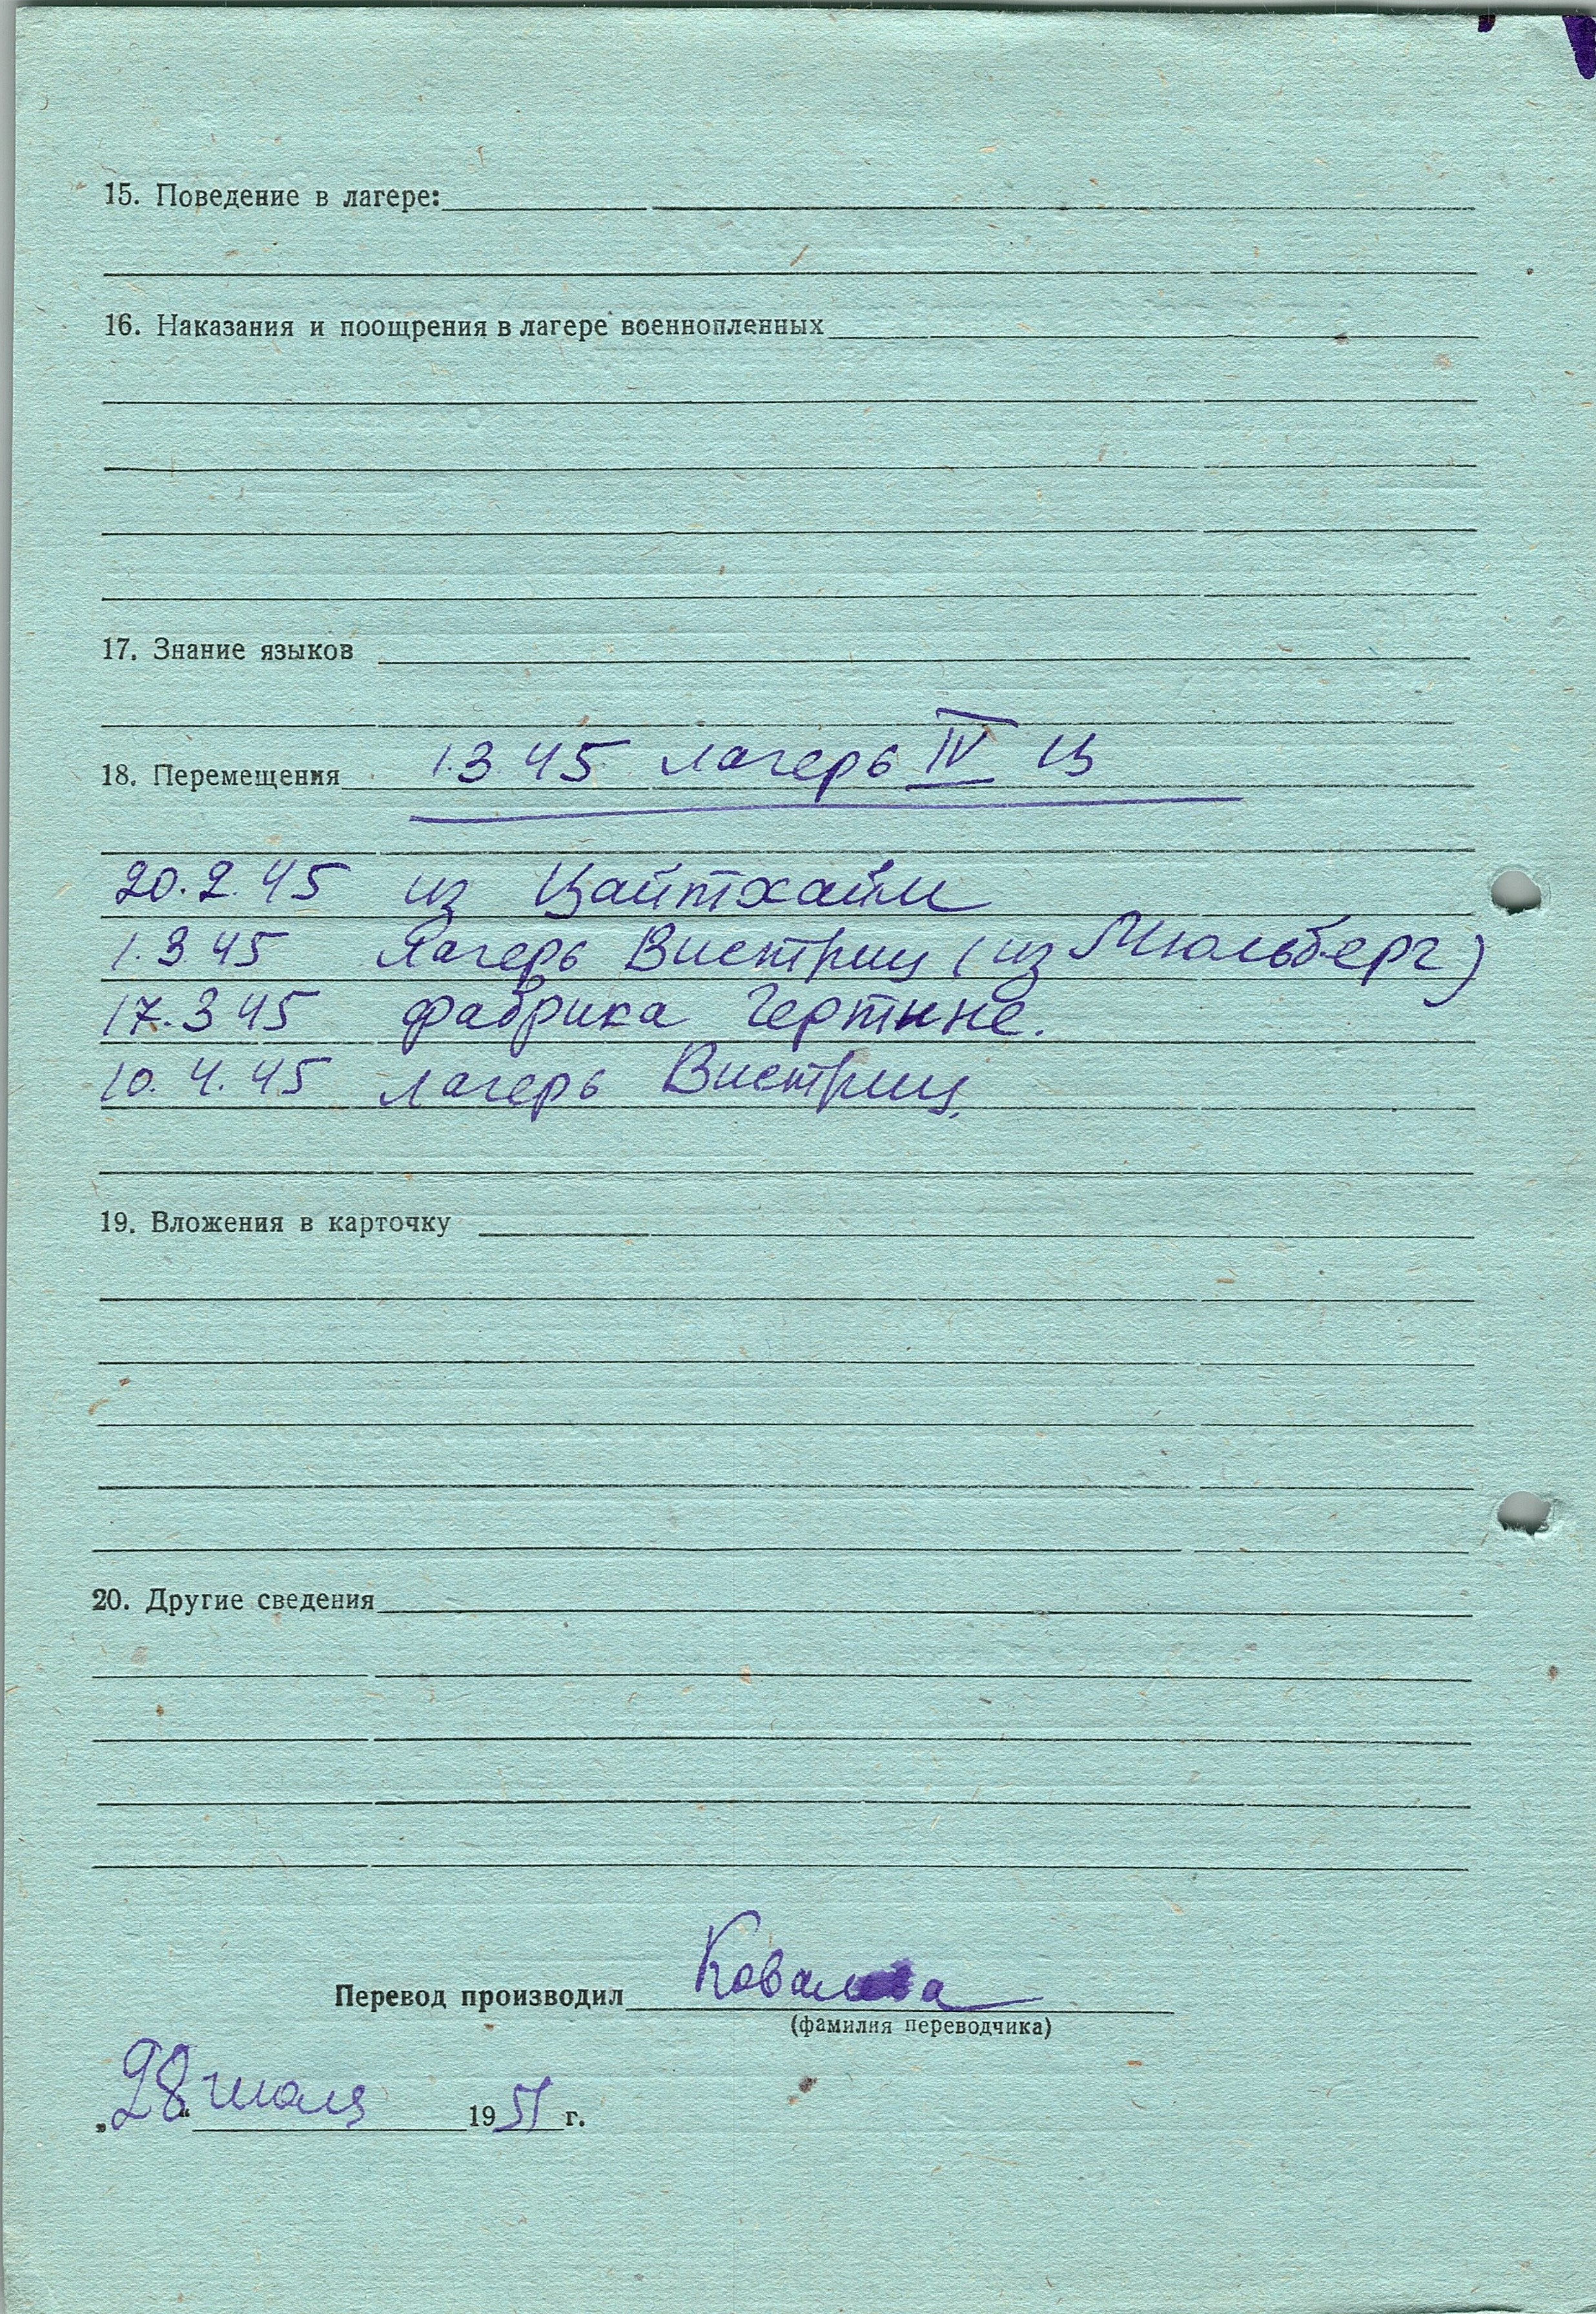 15. Поведение в лагере:
16. Наказания и поощрения в лагере военнопленных
17. Знание языков
18. Перемещения 1.3 45 лагерь IV Ц
20.2.45 из Цайтхайм
1.3 45 Лагерь Вистриц (из Мюльберг)
17.3 45 фабрика Гертине.
10.4.45 лагерь Вистриц.
19. Вложения в карточку
20. Другие сведения
Перевод производил Ковалева
(фамилия переводчика)
„28“ июля 1951 г.